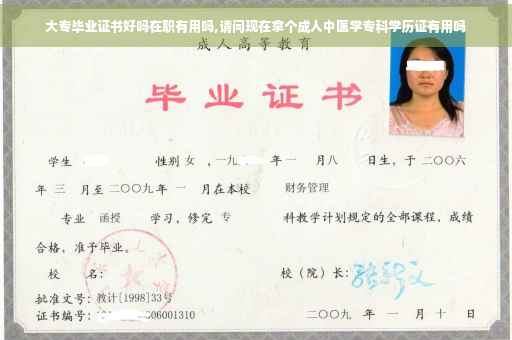 大专毕业证书好吗在职有用吗,请问现在拿个成人中医学专科学历证有用吗
成人高等教育
毕业证书
学生 性别 女 ,一九 年 一 月八 日生，于 二〇〇六
年 三 月至 二〇〇九 年 一 月在本校 财务管理
专业 函授 学习，修完 专 科教学计划规定的全部课程，成绩
合格，准予毕业。
校 名： 校（院）长：
批准文号：教计[1998]33号
证书编号： 06001310 二〇〇九 年 一 月 十 日